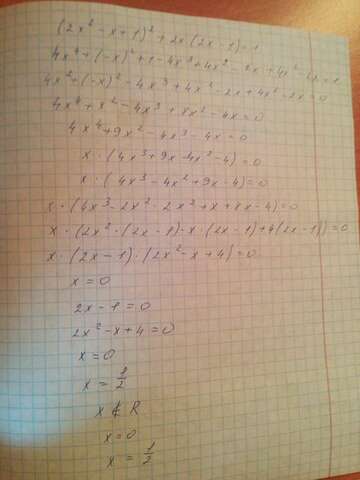 (2x² - x + 1)² + 2x · (2x - 1) = 1
4x⁴ + (-x)² + 1 - 4x³ + 4x² - 2x + 4x² - 2x = 1
4x⁴ + (-x)² - 4x³ + 4x² - 2x + 4x² - 2x = 0
4x⁴ + x² - 4x³ + 8x² - 4x = 0
4x⁴ + 9x² - 4x³ - 4x = 0
x · (4x³ + 9x - 4x² - 4) = 0
x · (4x³ - 4x² + 9x - 4) = 0
x · (4x³ - 2x² - 2x² + x + 8x - 4) = 0
x · (2x² · (2x - 1) - x · (2x - 1) + 4(2x - 1)) = 0
x · (2x - 1) · (2x² - x + 4) = 0
x = 0
2x - 1 = 0
2x² - x + 4 = 0
x = 0
x = 1/2
x ∉ R
x = 0
x = 1/2